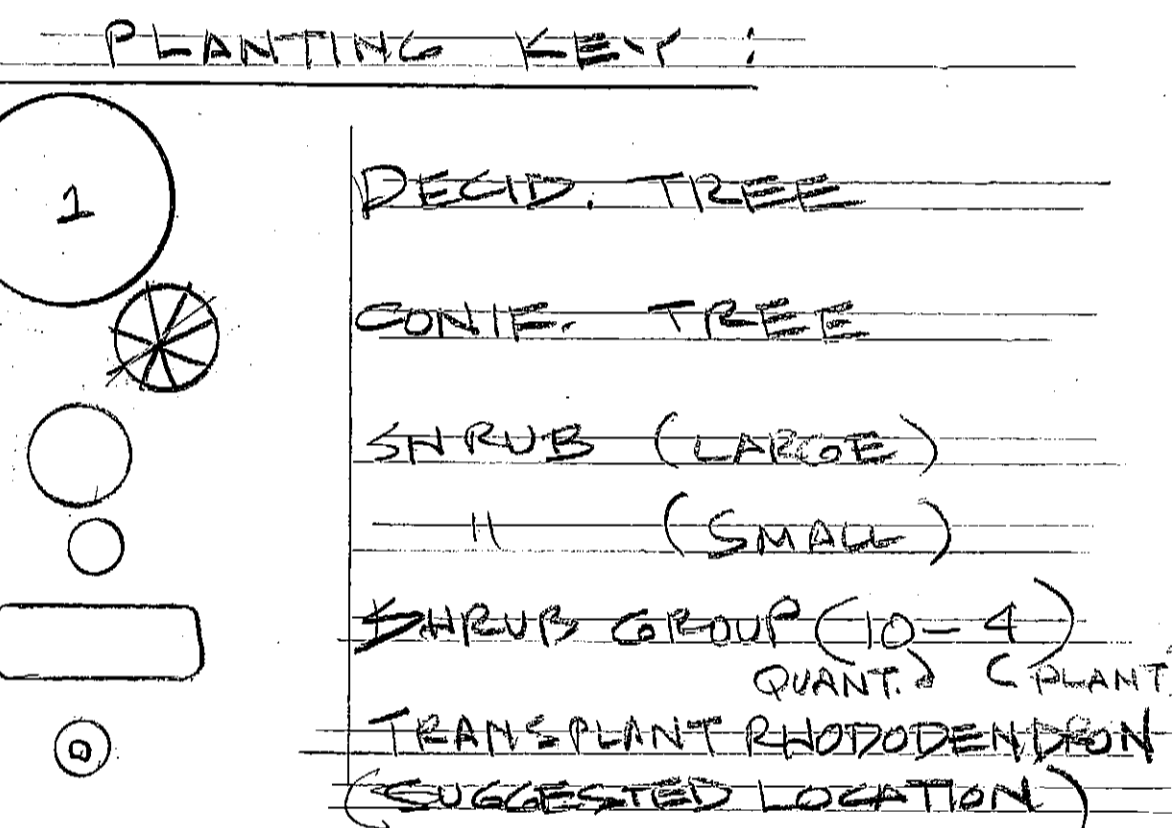 PLANTING KEY:
1
DECID. TREE
CONIF. TREE
SHRUB (LARGE)
" (SMALL)
SHRUB GROUP (10-4)
QUANT. PLANT.
TRANSPLANT RHODODENDRON
(SUGGESTED LOCATION)